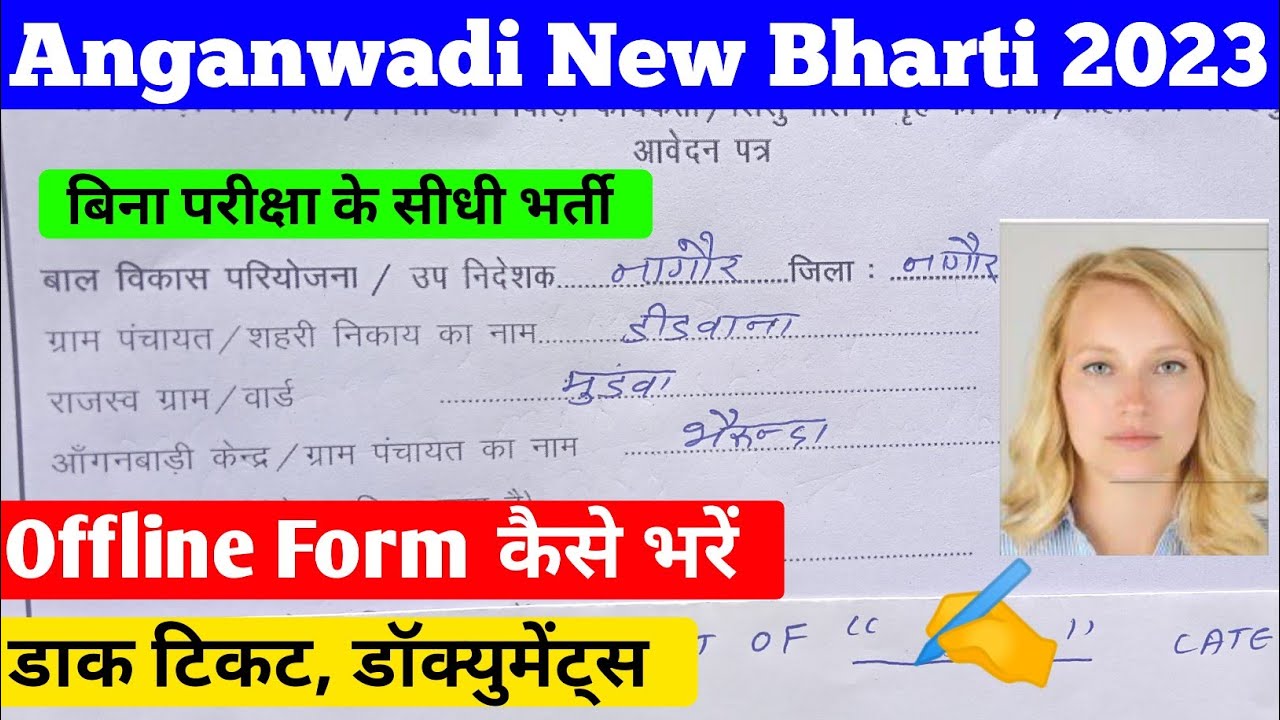 Anganwadi New Bharti 2023
आवेदन पत्र
बिना परीक्षा के सीधी भर्ती
बाल विकास परियोजना / उप निदेशक.....नागौर.....जिला : नागौर
ग्राम पंचायत/शहरी निकाय का नाम.....डीडवाना
राजस्व ग्राम/वार्ड .....मुडंवा
आँगनबाड़ी केन्द्र/ग्राम पंचायत का नाम .....भैरून्दा
Offline Form कैसे भरें
डाक टिकट, डॉक्युमेंट्स
OF “ ” CATE